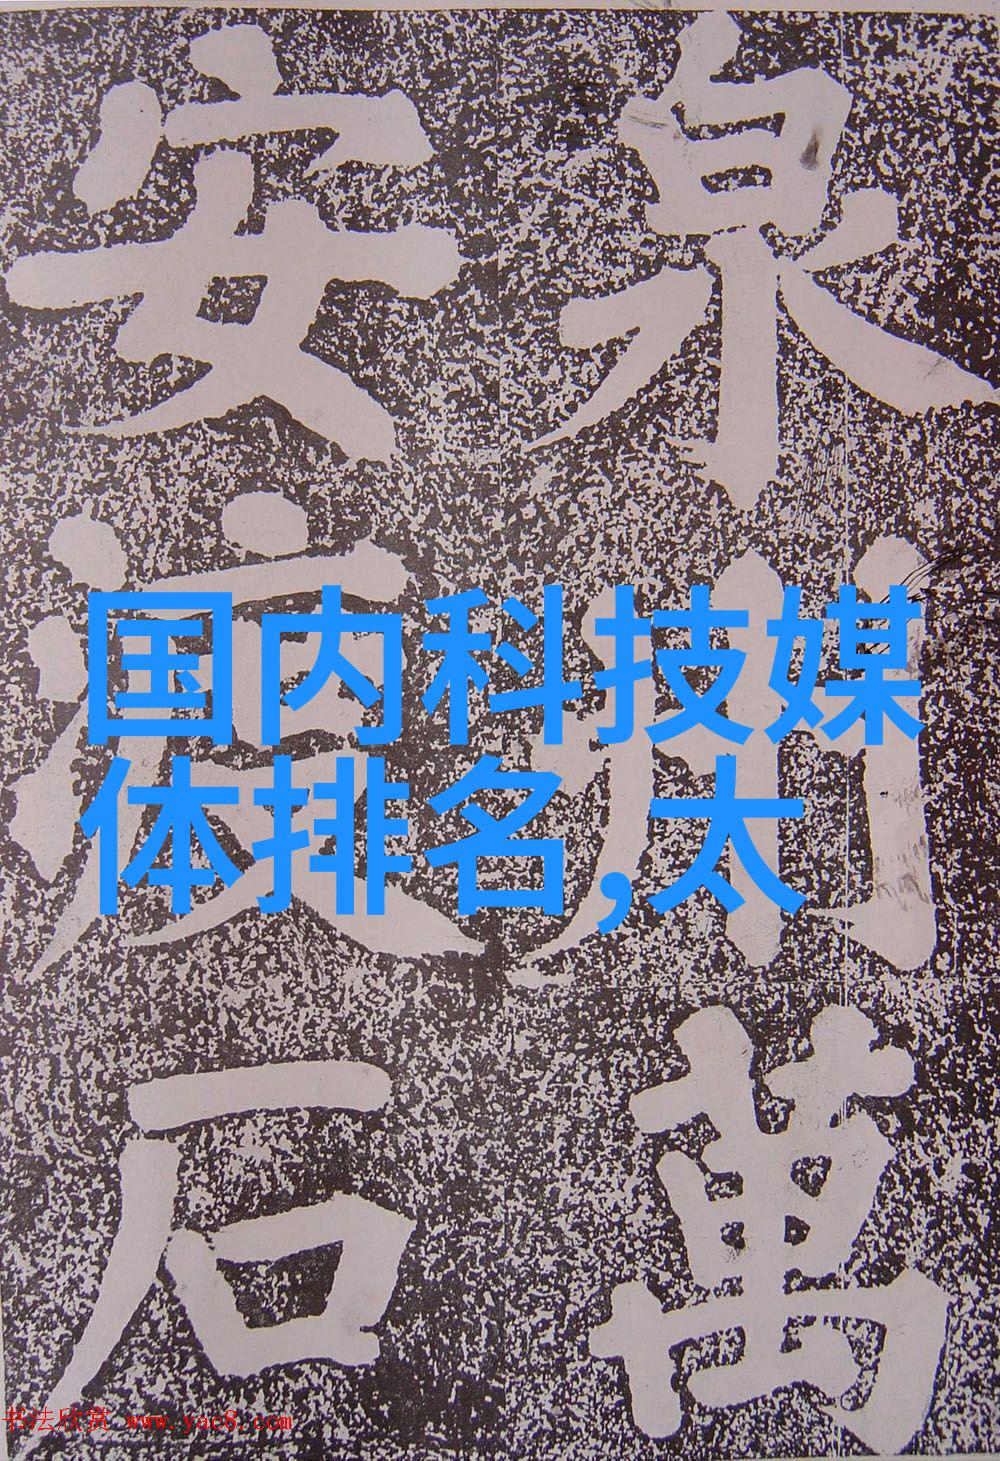 泉州萬
安渡石
国内科技媒
体排名,太
书法欣赏 www.yac8.com